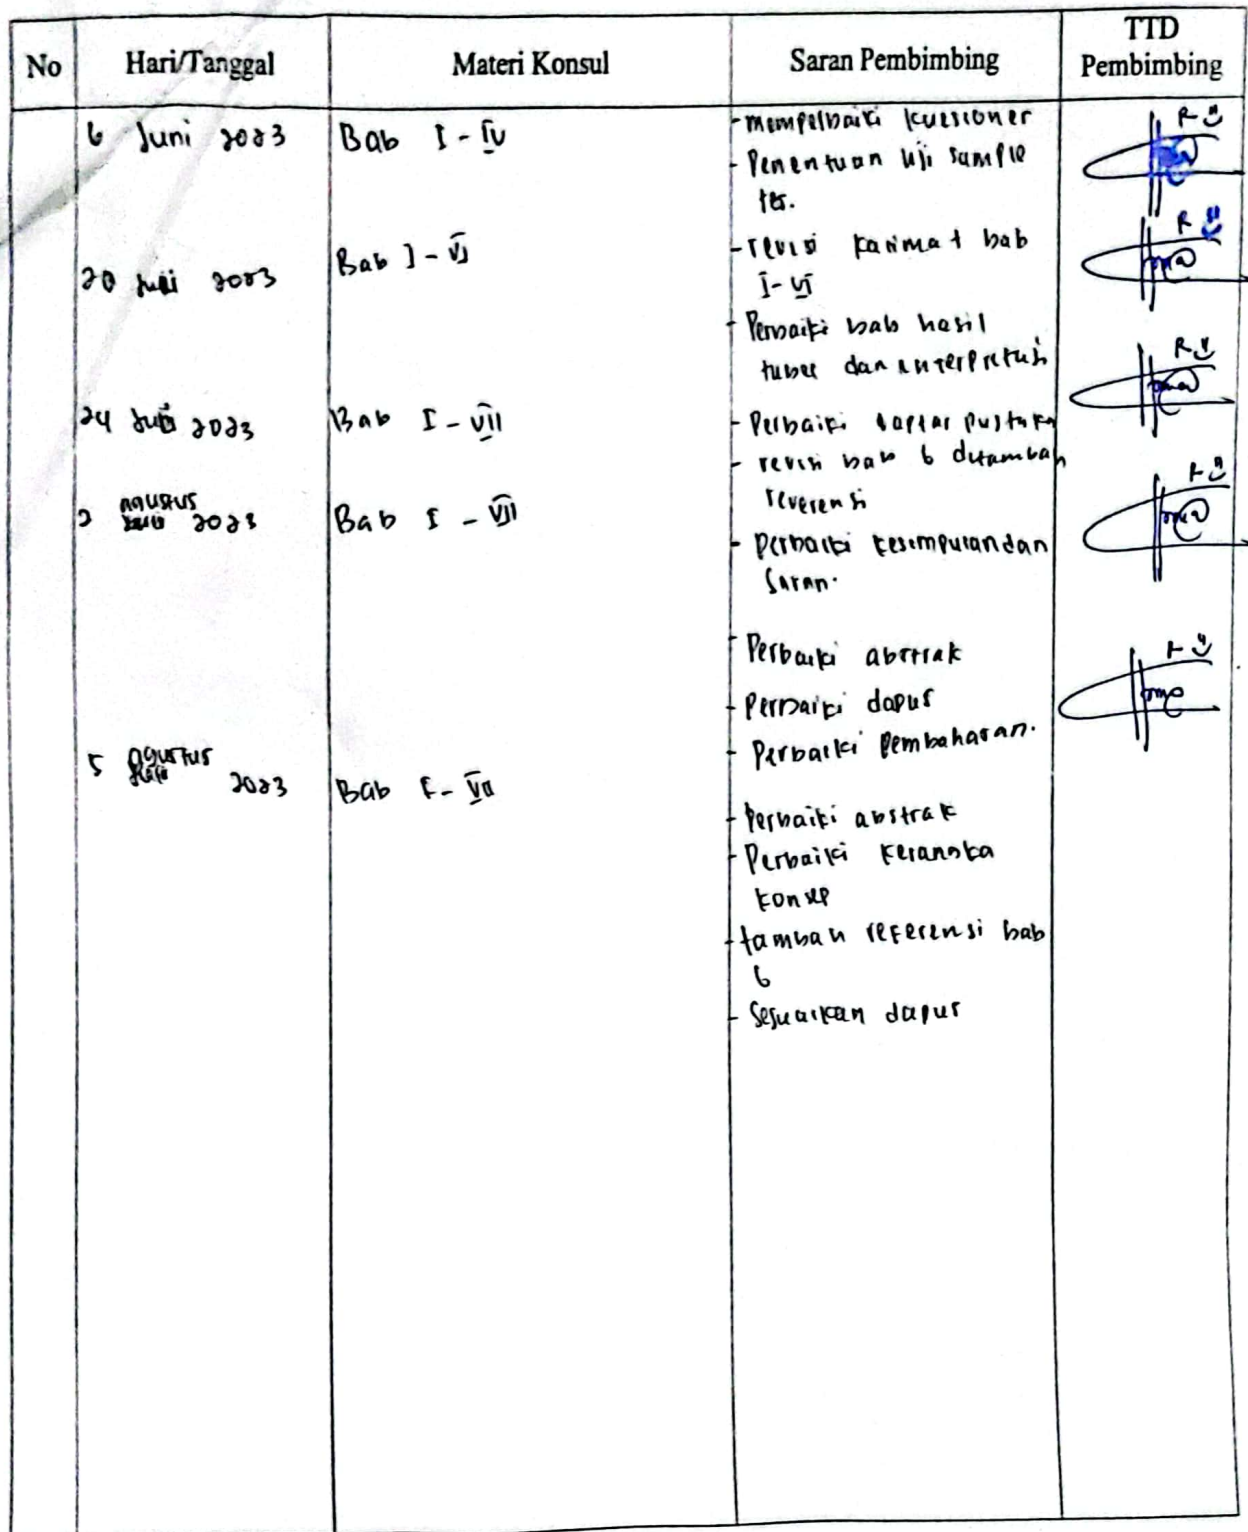 No Hari/Tanggal Materi Konsul Saran Pembimbing TTD Pembimbing
6 Juni 2023 Bab I - IV
- mempelbaiki kuesioner
- Penentuan uji sample
tes.
20 Juli 2023 Bab I - VI
- revisi kalimat bab
I - VI
- Perbaiki bab hasil
tabel dan interpretasi
24 Juli 2023 Bab I - VII
- Perbaiki daftar pustaka
- revisi bab 6 ditambah
reverensi
agustus
2023 Bab I - VII
- Perbaiki kesimpulan dan
Saran.
- Perbaiki abstrak
- Perbaiki dapus
- Perbaiki Pembahasan.
5 agustus 2023 Bab I - VII
- Perbaiki abstrak
- Perbaiki kerangka
konsep
- tambah referensi bab
6
- Sesuaikan dapus